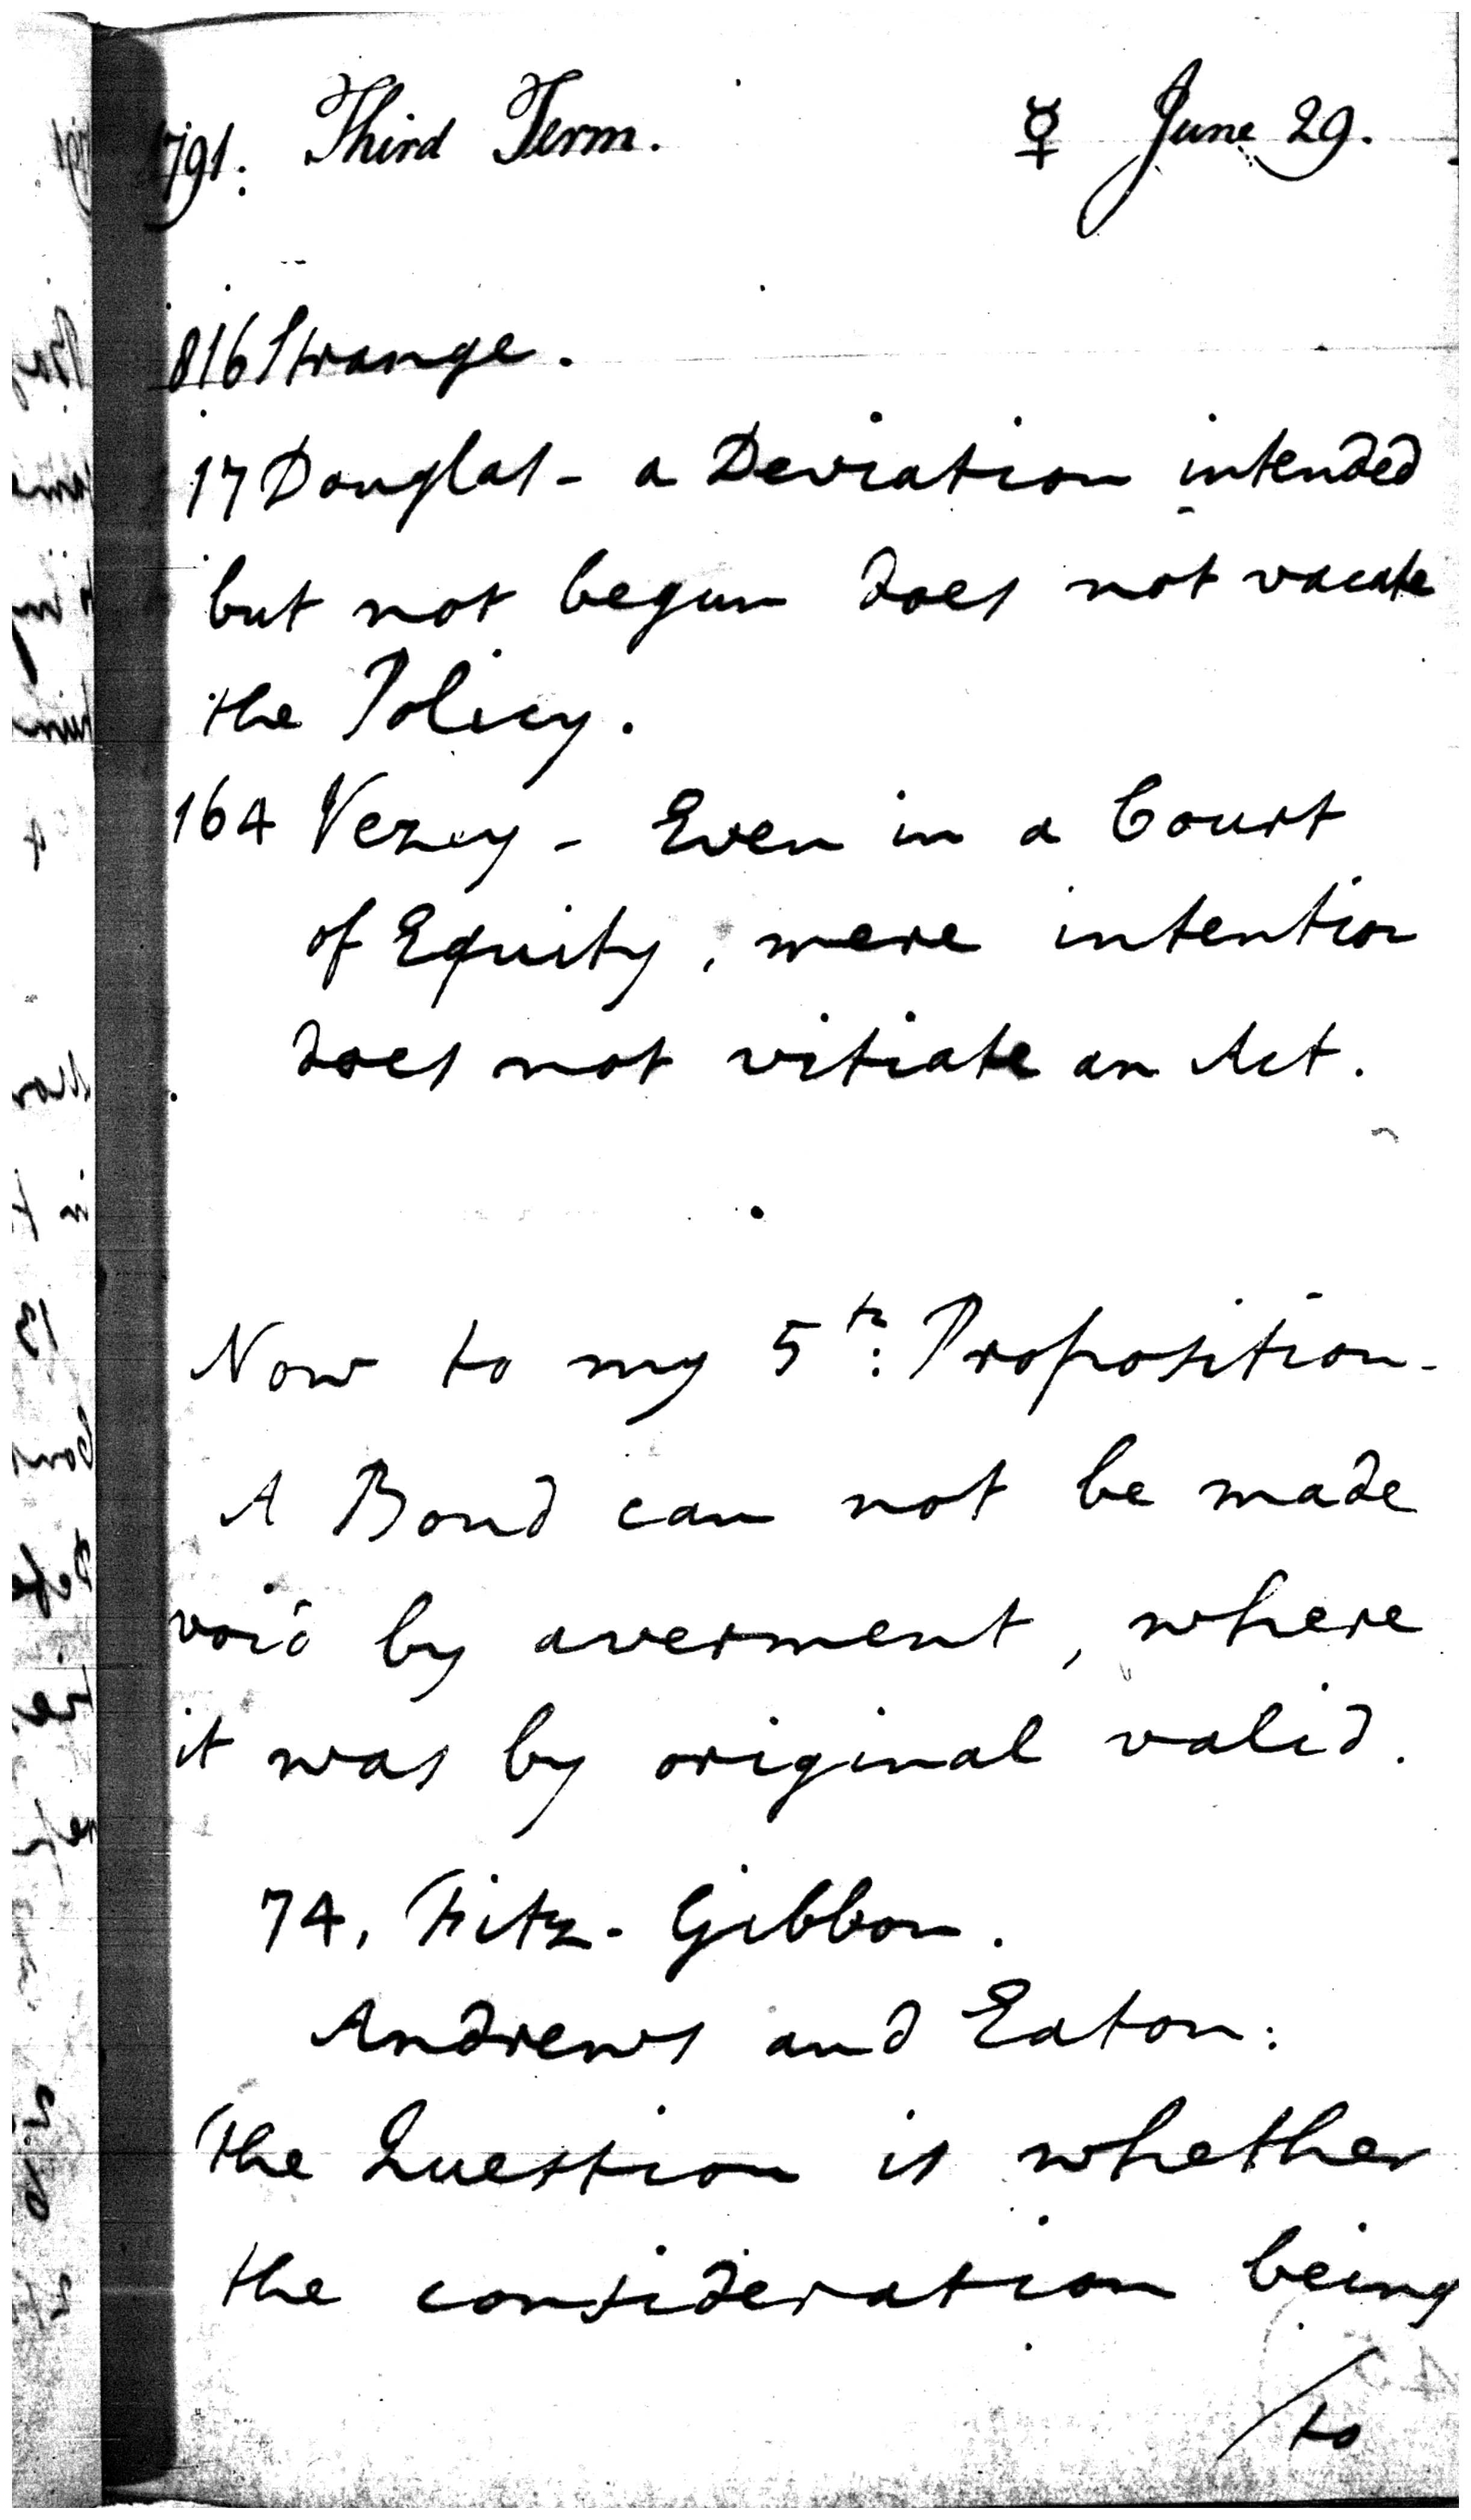 1791. Third Term. ☿ June 29.
816 Strange.
17 Douglas - a Deviation intended
but not begun does not vacate
the Policy.
164 Vezey - Even in a Court
of Equity, mere intention
does not vitiate an Act.
Now to my 5th: Proposition -
A Bond can not be made
void by averment, where
it was by original valid.
74, Fitz-Gibbon.
Andrews and Eaton:
The Question is whether
the consideration being
/to